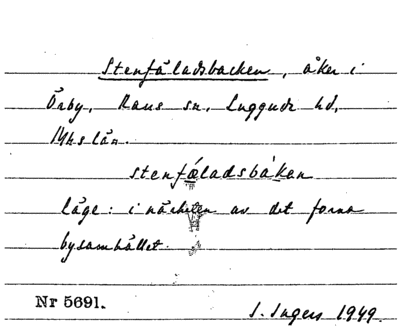 Stenfäladsbacken, åker i
Örby, Raus sn, Luggude hd,
Mhs län.
stenfǽladsbàken
läge: i närheten av det forna
bysamhället.
Nr 5691.
I. Ingers 1949.